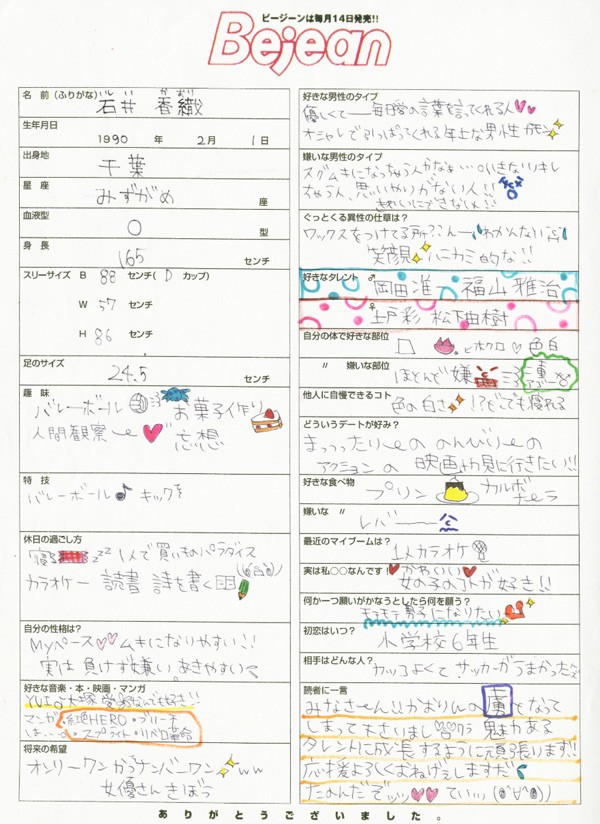 ビージーンは毎月14日発売!!
Bejean
名前(ふりがな) いしい かおり
石井 香織
生年月日
1990 年 2月 1日
出身地
千葉
星座
みずがめ 座
血液型
O 型
身長
165 センチ
スリーサイズ B 88 センチ( D カップ)
W 57 センチ
H 86 センチ
足のサイズ
24.5 センチ
趣味
バレーボール お菓子作り
人間観察 妄想
特技
バレーボール♪ キックを
休日の過ごし方
寝 zzz 1人で買いものパラダイス
カラオケー 読書 詩を書く
自分の性格は?
Myペース♡♡ムキになりやすい!!
実は負けず嫌い あきやすい
好きな音楽・本・映画・マンガ
YUI 大塚 愛
マンガ HERO・ブリーチ
は… スプライト・リバロ革命
将来の希望
オンリーワンからナンバーワン ww
女優さんきぼう
好きな男性のタイプ
優しくて――毎日愛の言葉を言ってくれる人♥♥
オシャレで引っぱってくれる年上な男性
嫌いな男性のタイプ
スグムキになっちゃう人かなぁ…いきなりキレ
ちゃう人、思いやりがない人!!
きれいにできない人!!
ぐっとくる異性の仕草は?
ワックスをつけてる所??んーわかんない
笑顔 ハニカミ的な!!
好きなタレント ♂ 岡田准一 福山雅治
♀ 上戸彩 松下由樹
自分の体で好きな部位
口 ホクロ♡色白
〃 嫌いな部位
ほとんど嫌
他人に自慢できるコト
色の白さ !?どこでも寝れる
どういうデートが好み?
まっったりの のんびりの
アクションの 映画や見に行きたい!!
好きな食べ物
プリン カルボナーラ
嫌いな 〃
レバー
最近のマイブームは?
1人カラオケ
実は私○○なんです!
かわいい
女の子のコトが好き!!
何か一つ願いがかなうとしたら何を願う?
モテモテ男子になりたい
初恋はいつ?
小学校6年生
相手はどんな人?
カッコよくてサッカーがうまかった
読者に一言
みなさーん!!かおりんの虜になって
しまって下さいまし 魅力ある
タレントに成長するように頑張ります!!
応援よろしくおねがぇしますだ
たのんだぞッッ♥♥ていッッ
ありがとうございました。